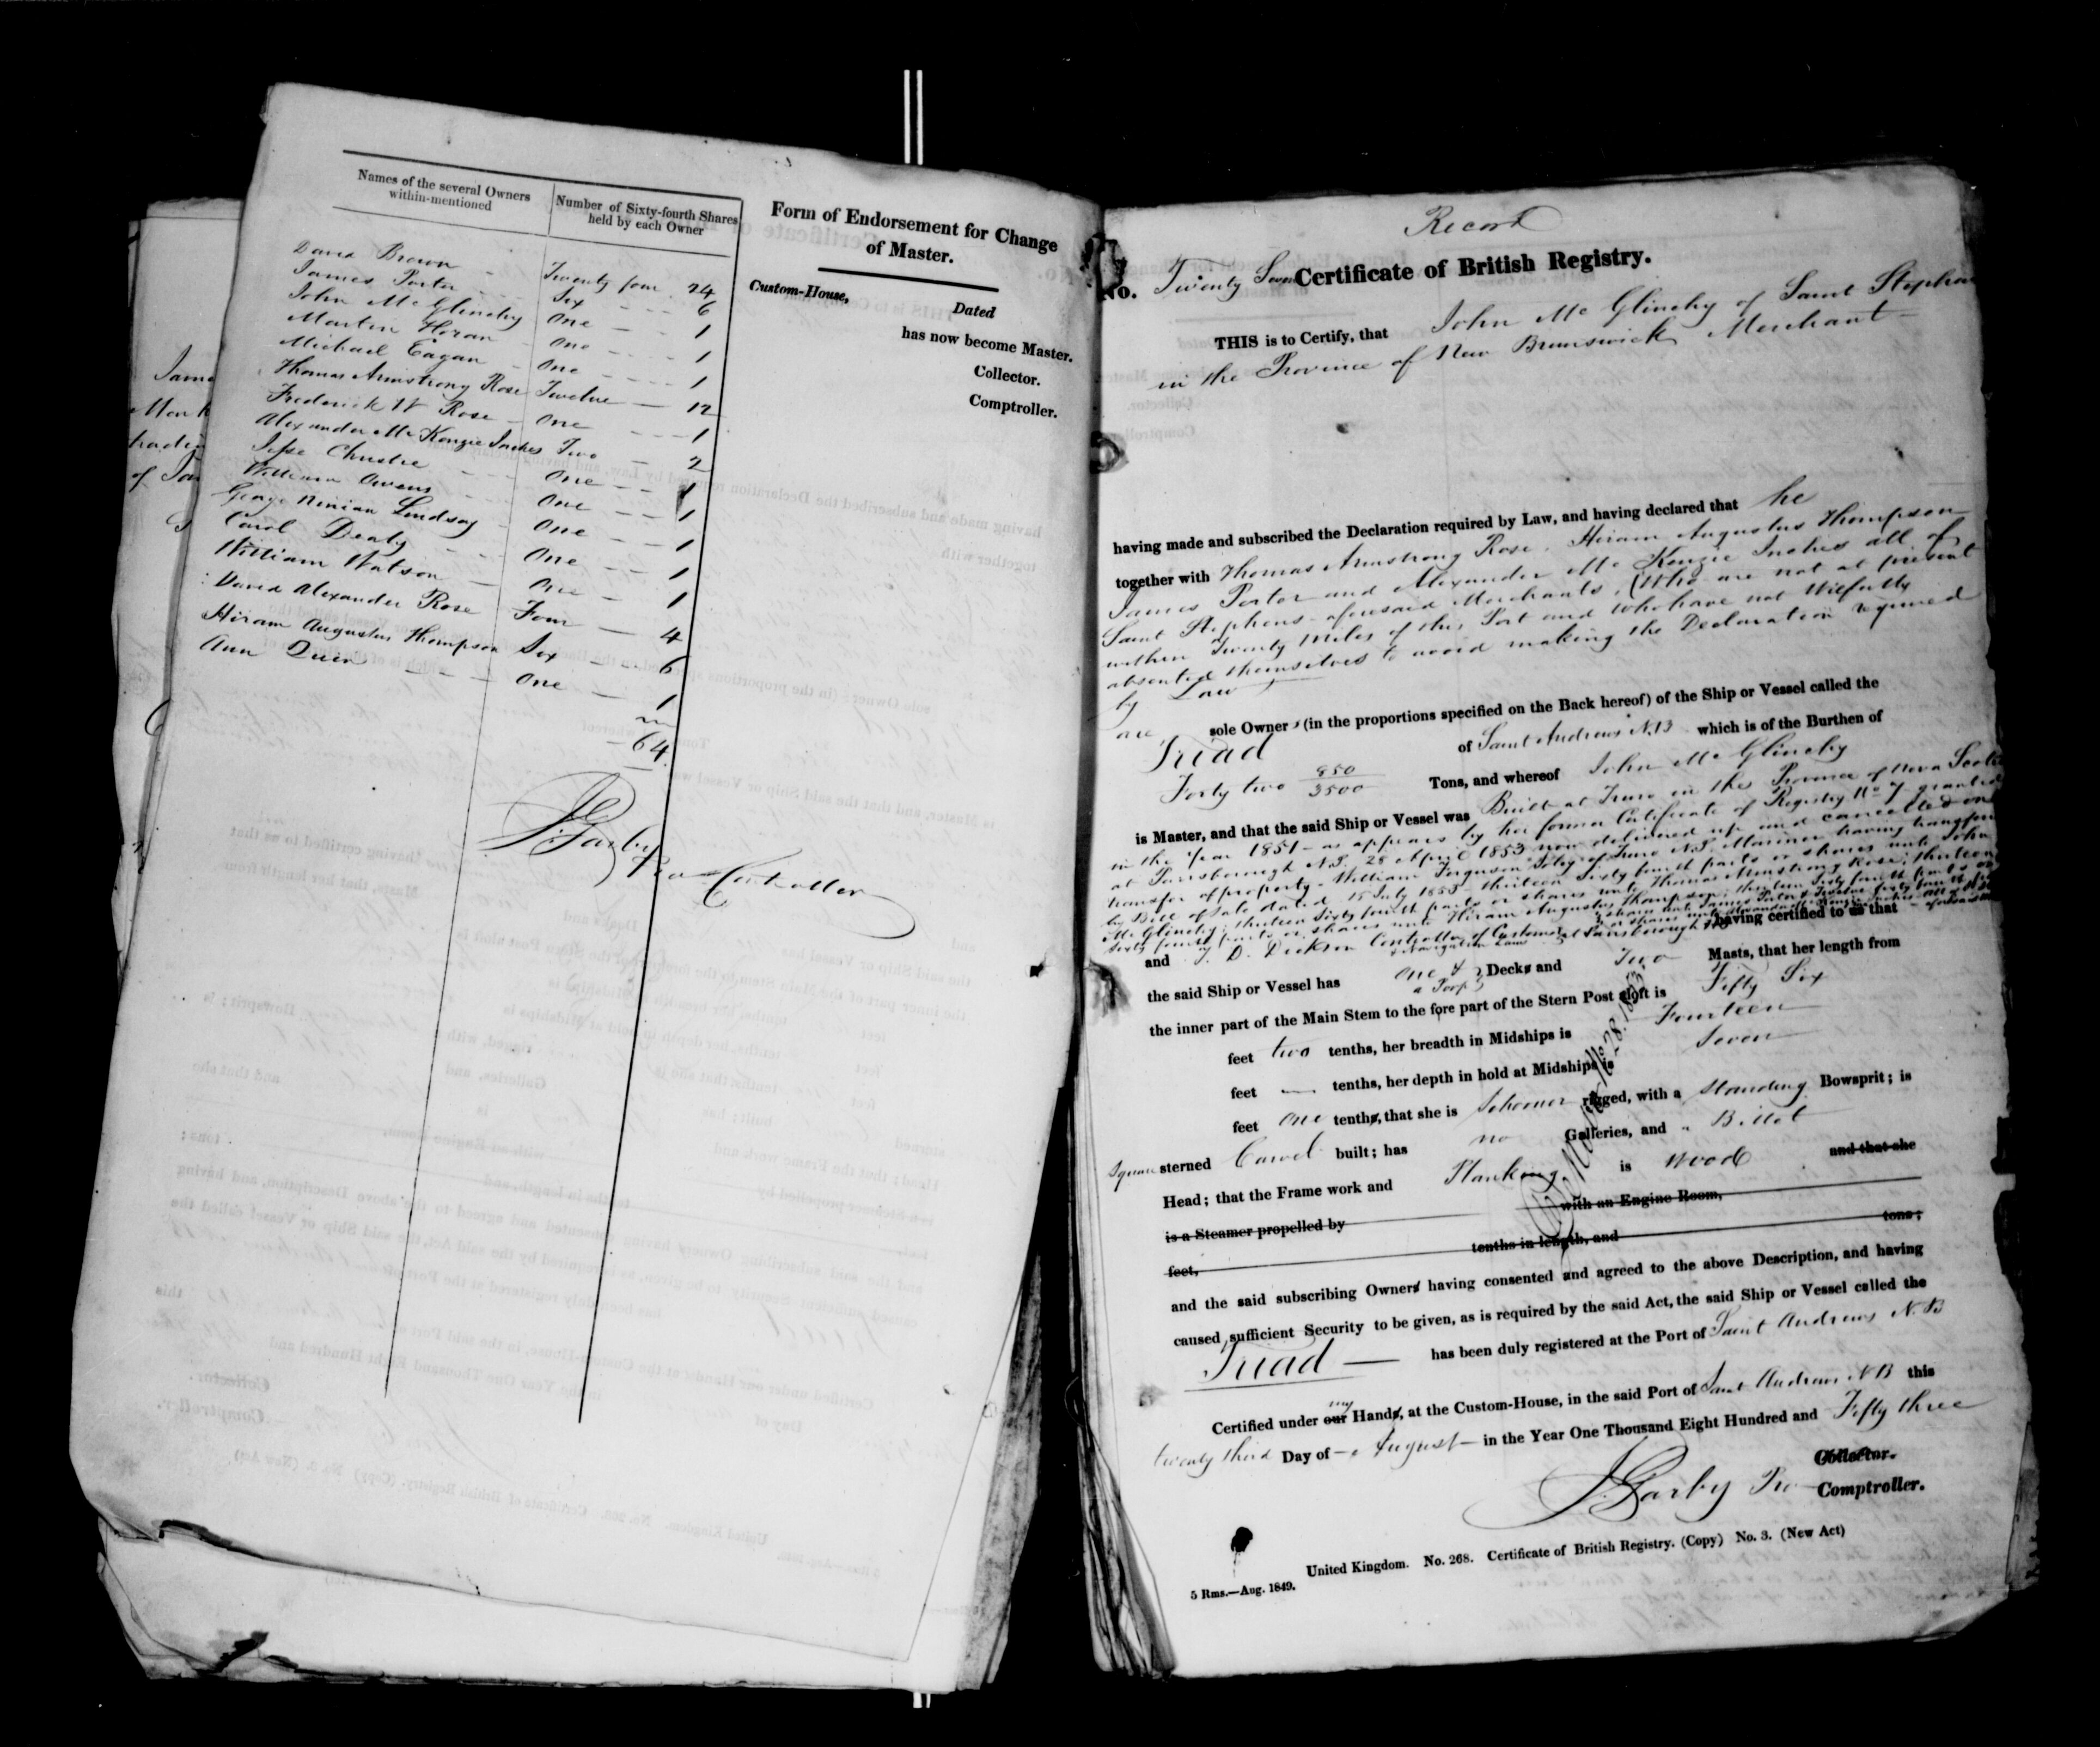 Names of the several Owners within-mentioned
Number of Sixty-fourth Shares held by each Owner
David Brown Twenty four 24
James Porter Six 6
John Mc Glinchy One 1
Martin Horan One 1
Michael Eagan One 1
Thomas Armstrong Rose Twelve 12
Frederick W Rose One 1
Alexander Mc Kenzie Inches Two 2
Jesse Christie One 1
William Owens One 1
George Ninian Lindsay One 1
Carol Dealy One 1
William Watson One 1
David Alexander Rose Four 4
Hiram Augustus Thompson Six 6
Ann One 1
64
Comptroller
Form of Endorsement for Change
of Master.
Custom-House, Dated
has now become Master.
Collector.
Comptroller.
Record
No. Twenty Seven Certificate of British Registry.
THIS is to Certify, that John Mc Glinchy of Saint Stephen
in the Province of New Brunswick Merchant
having made and subscribed the Declaration required by Law, and having declared that he
together with Thomas Armstrong Rose, Hiram Augustus Thompson
James Porter and Alexander Mc Kenzie Inches all of
Saint Stephens aforesaid Merchants, (Who are not at present
within Twenty Miles of this Port and who have not Wilfully
absented themselves to avoid making the Declaration required
by Law
are sole Owners (in the proportions specified on the Back hereof) of the Ship or Vessel called the
Triad of Saint Andrews N.B which is of the Burthen of
Forty two 950/3500 Tons, and whereof John Mc Glinchy
is Master, and that the said Ship or Vessel was Built at Truro in the Province of Nova Scotia
in the Year 1851 as appears by her former Certificate of Registry No 7 granted
at Parrsborough N.S. 28 April 1853 now delivered up and cancelled on
transfer of property - William Ferguson of Truro N.S. Mariner having
by Bill of Sale dated 15 July 1853 thirteen Sixty fourth parts or shares unto John
Mc Glinchy; thirteen Sixty fourth parts or shares unto Thomas Armstrong Rose; thirteen
Sixty fourth parts or shares unto Hiram Augustus Thompson;
and D. Dickson Controller of Customs & Navigation Laws at Parrsborough having certified to us that
the said Ship or Vessel has One & a Poop Decks and Two Masts, that her length from
the inner part of the Main Stem to the fore part of the Stern Post aloft is Fifty Six
feet two tenths, her breadth in Midships is Fourteen
feet — tenths, her depth in hold at Midships is Seven
feet One tenths, that she is Schooner rigged, with a Standing Bowsprit; is
Square sterned Carvel built; has no Galleries, and a Billet
Head; that the Frame work and Planking is Wood and that she
is a Steamer propelled by with an Engine Room,
feet, tenths in length, and tons;
and the said subscribing Owners having consented and agreed to the above Description, and having
caused sufficient Security to be given, as is required by the said Act, the said Ship or Vessel called the
Triad — has been duly registered at the Port of Saint Andrews N.B
Certified under our my Hands, at the Custom-House, in the said Port of Saint Andrews NB this
twenty third Day of August in the Year One Thousand Eight Hundred and Fifty three
Collector.
Comptroller.
United Kingdom. No. 268. Certificate of British Registry. (Copy) No. 3. (New Act)
5 Rms.—Aug. 1849.